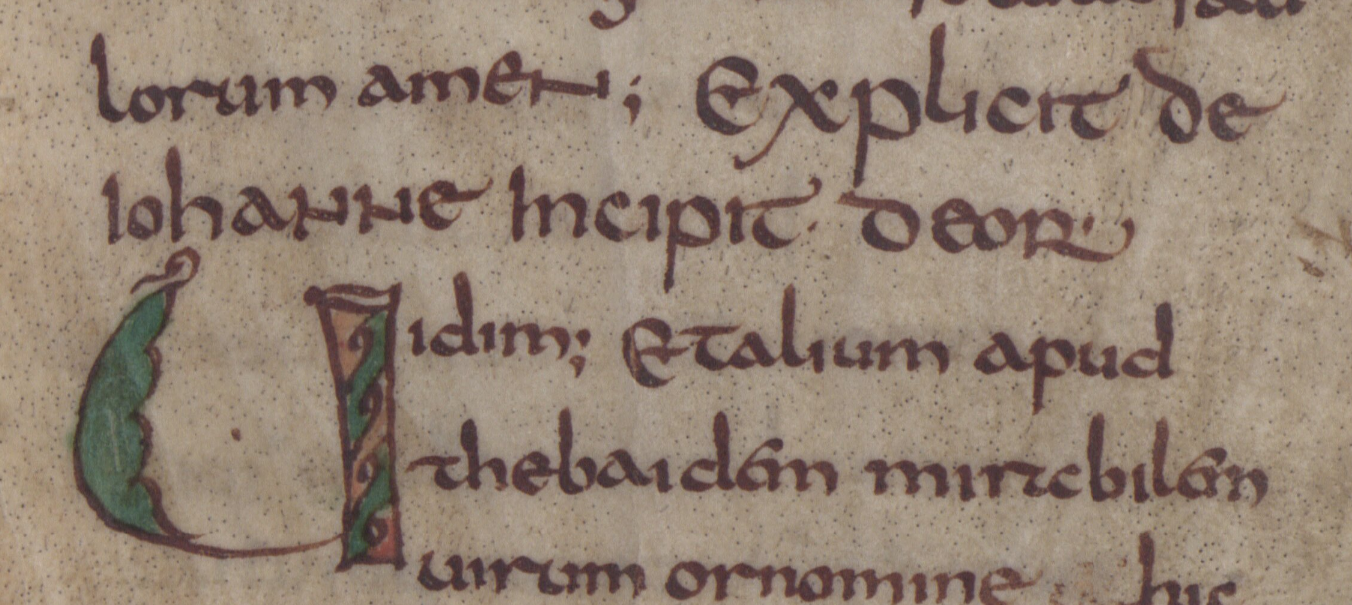 lorum amen; Explicit de
Iohanne Incipit de or·
Uidim; Et alium apud
thebaidem mirabilem
uirum or nomine his